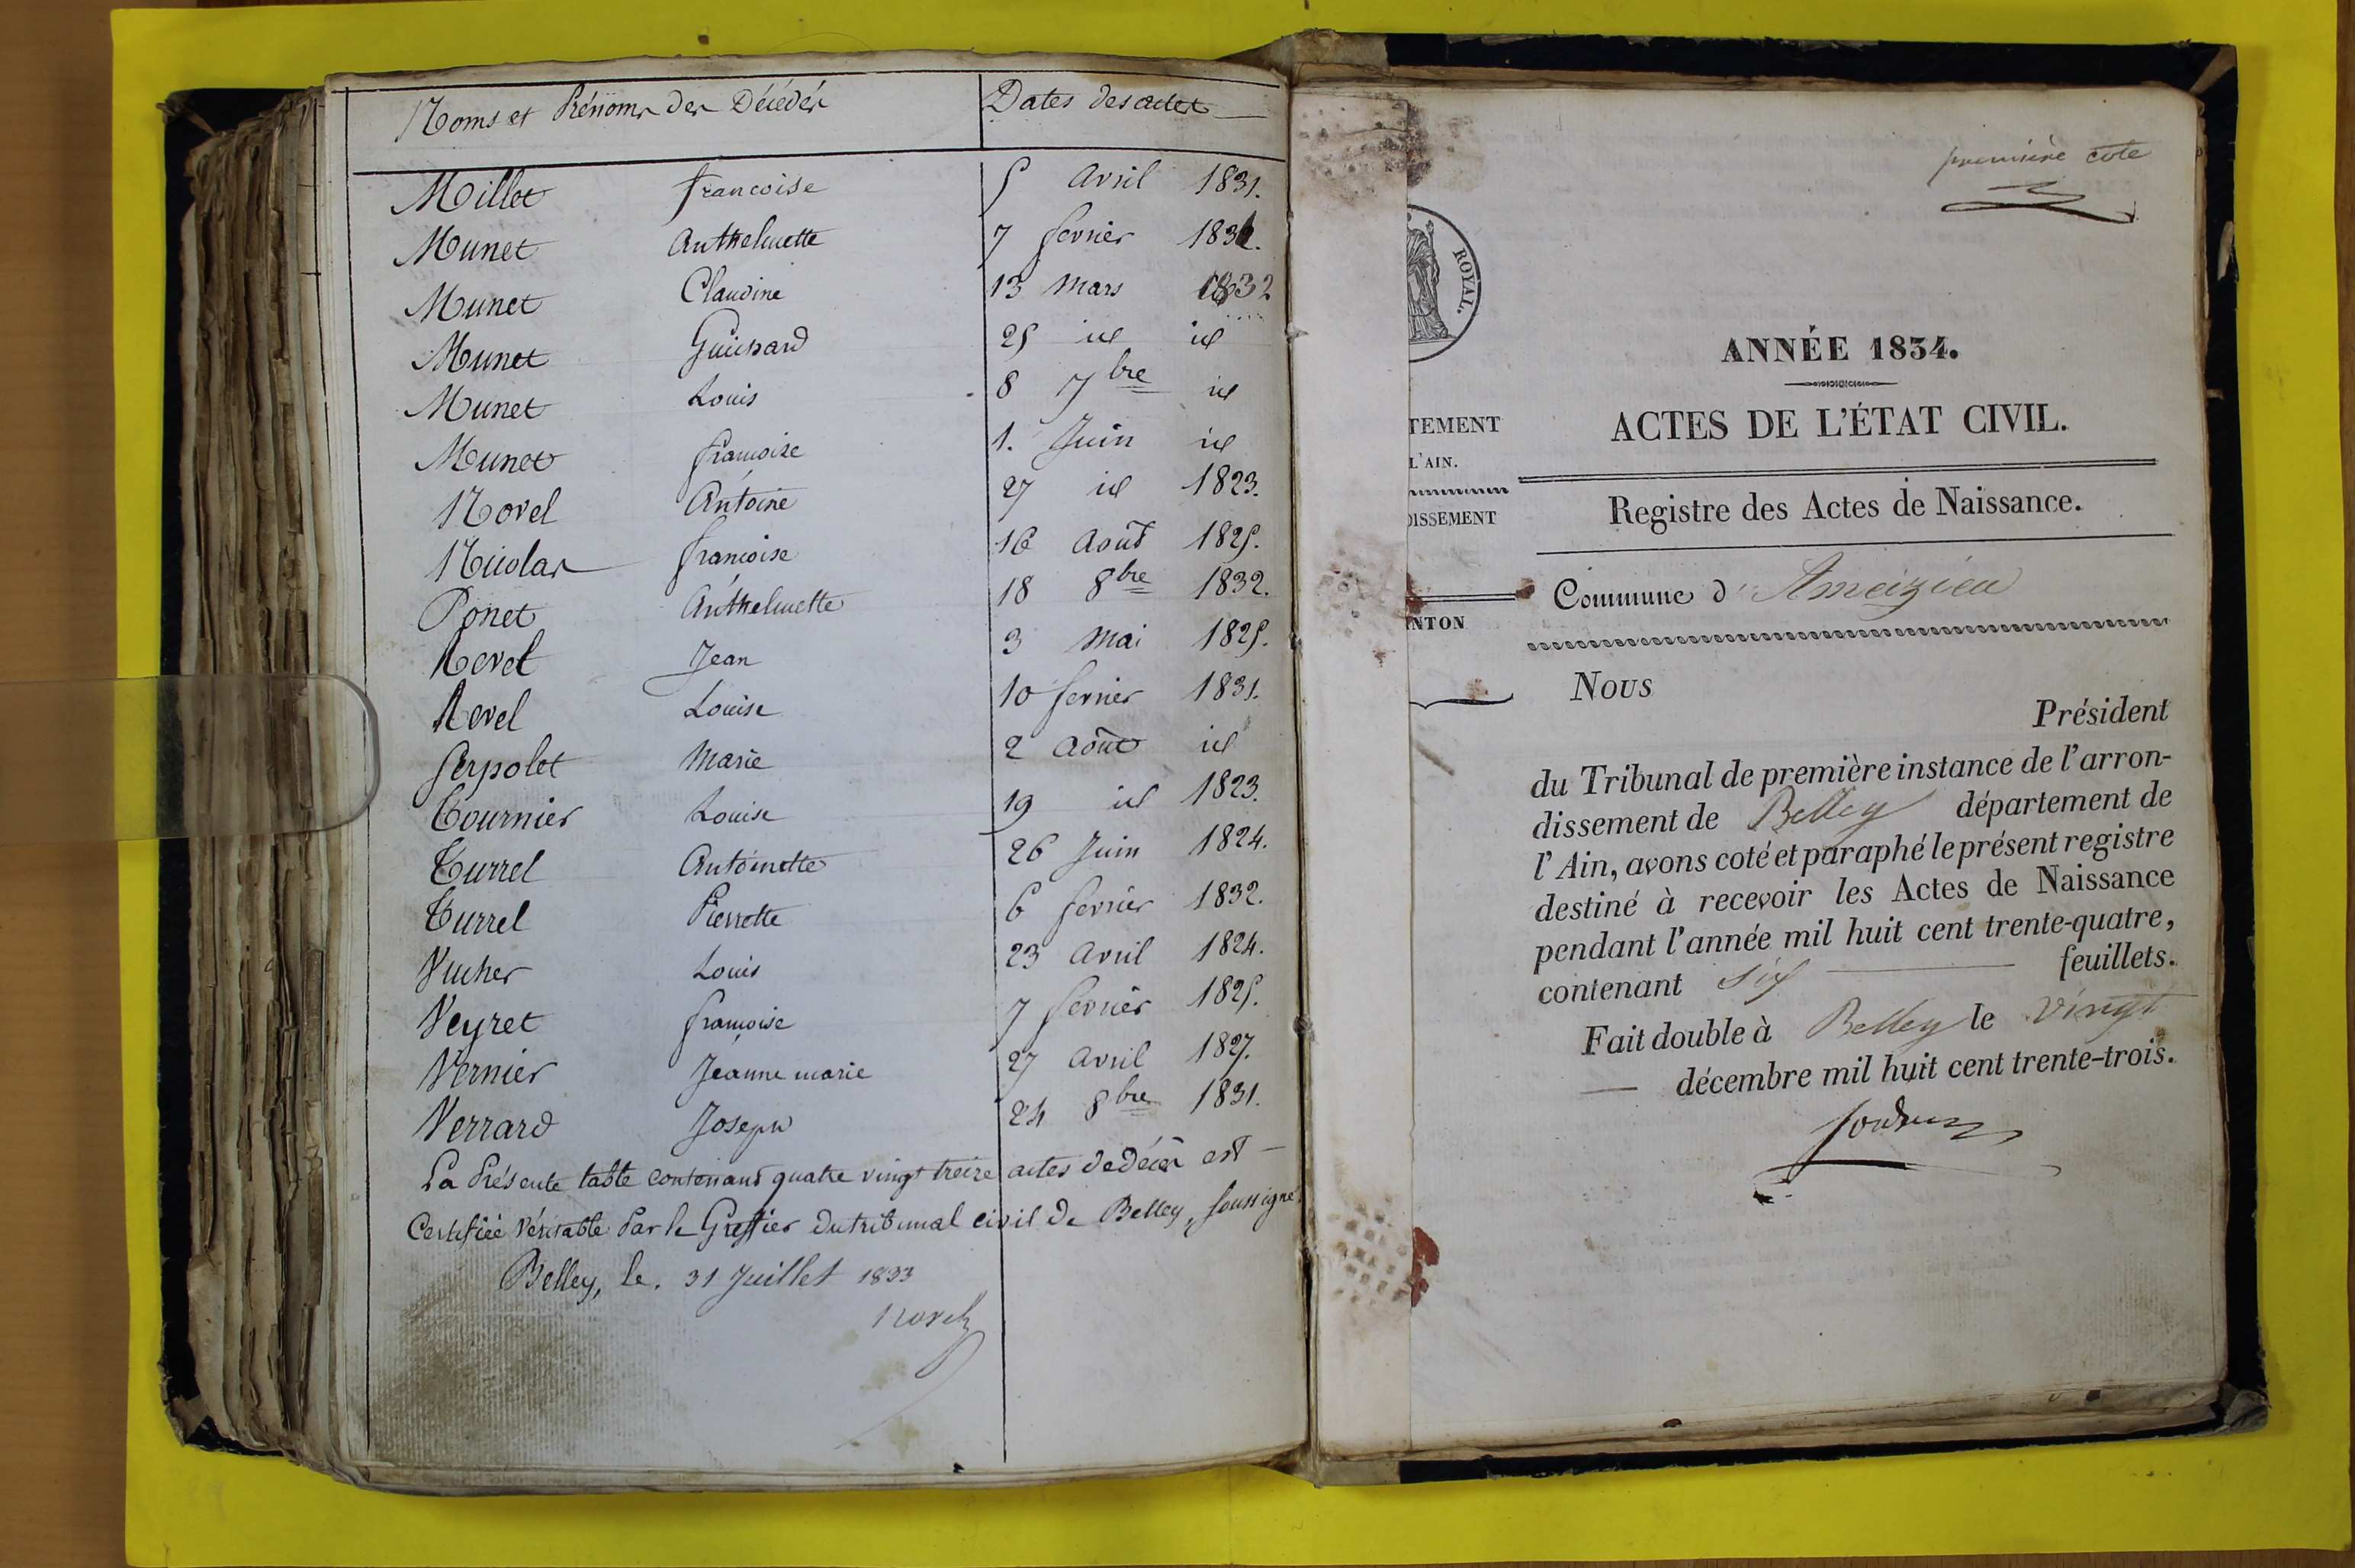 Noms et Prénoms des Décédés Dates des actes
Millet françoise 5 Avril 1831.
Munet Anthelmette 7 fevrier 1832.
Munet Claudine 13 Mars 1832
Munet 25 id id
Munet Louis 8 7bre id
Munet françoise 1. Juin id
Novel Antoine 27 id 1823.
Nicolas françoise 16 Août 1825.
Ponet Anthelmette 18 8bre 1832.
Revel Jean 3 Mai 1825.
Revel Louise 10 fevrier 1831.
Serpolet Marie 2 Août id
Tournier Louise 19 id 1823.
Turrel Antoinette 26 Juin 1824.
Turrel Pierrette 6 fevrier 1832.
Vucher Louis 23 Avril 1824.
Veyret françoise 7 fevrier 1825.
Vernier Jeanne marie 27 Avril 1827.
Verrard Joseph 24 8bre 1831.
La Présente table contenant quatre vingt treize actes de décès est
Certifiée Véritable Par le Greffier du tribunal civil de Belley, soussigné
Belley, le. 31 Juillet 1833
première cote
ROYAL.
ANNÉE 1834.
TEMENT
ACTES DE L'ÉTAT CIVIL.
L'AIN.
DISSEMENT
Registre des Actes de Naissance.
NTON
Commune d' Ameizieu
Nous
Président
du Tribunal de première instance de l'arron-
dissement de Belley département de
l'Ain, avons coté et paraphé le présent registre
destiné à recevoir les Actes de Naissance
pendant l'année mil huit cent trente-quatre,
contenant six feuillets.
Fait double à Belley le vingt
décembre mil huit cent trente-trois.